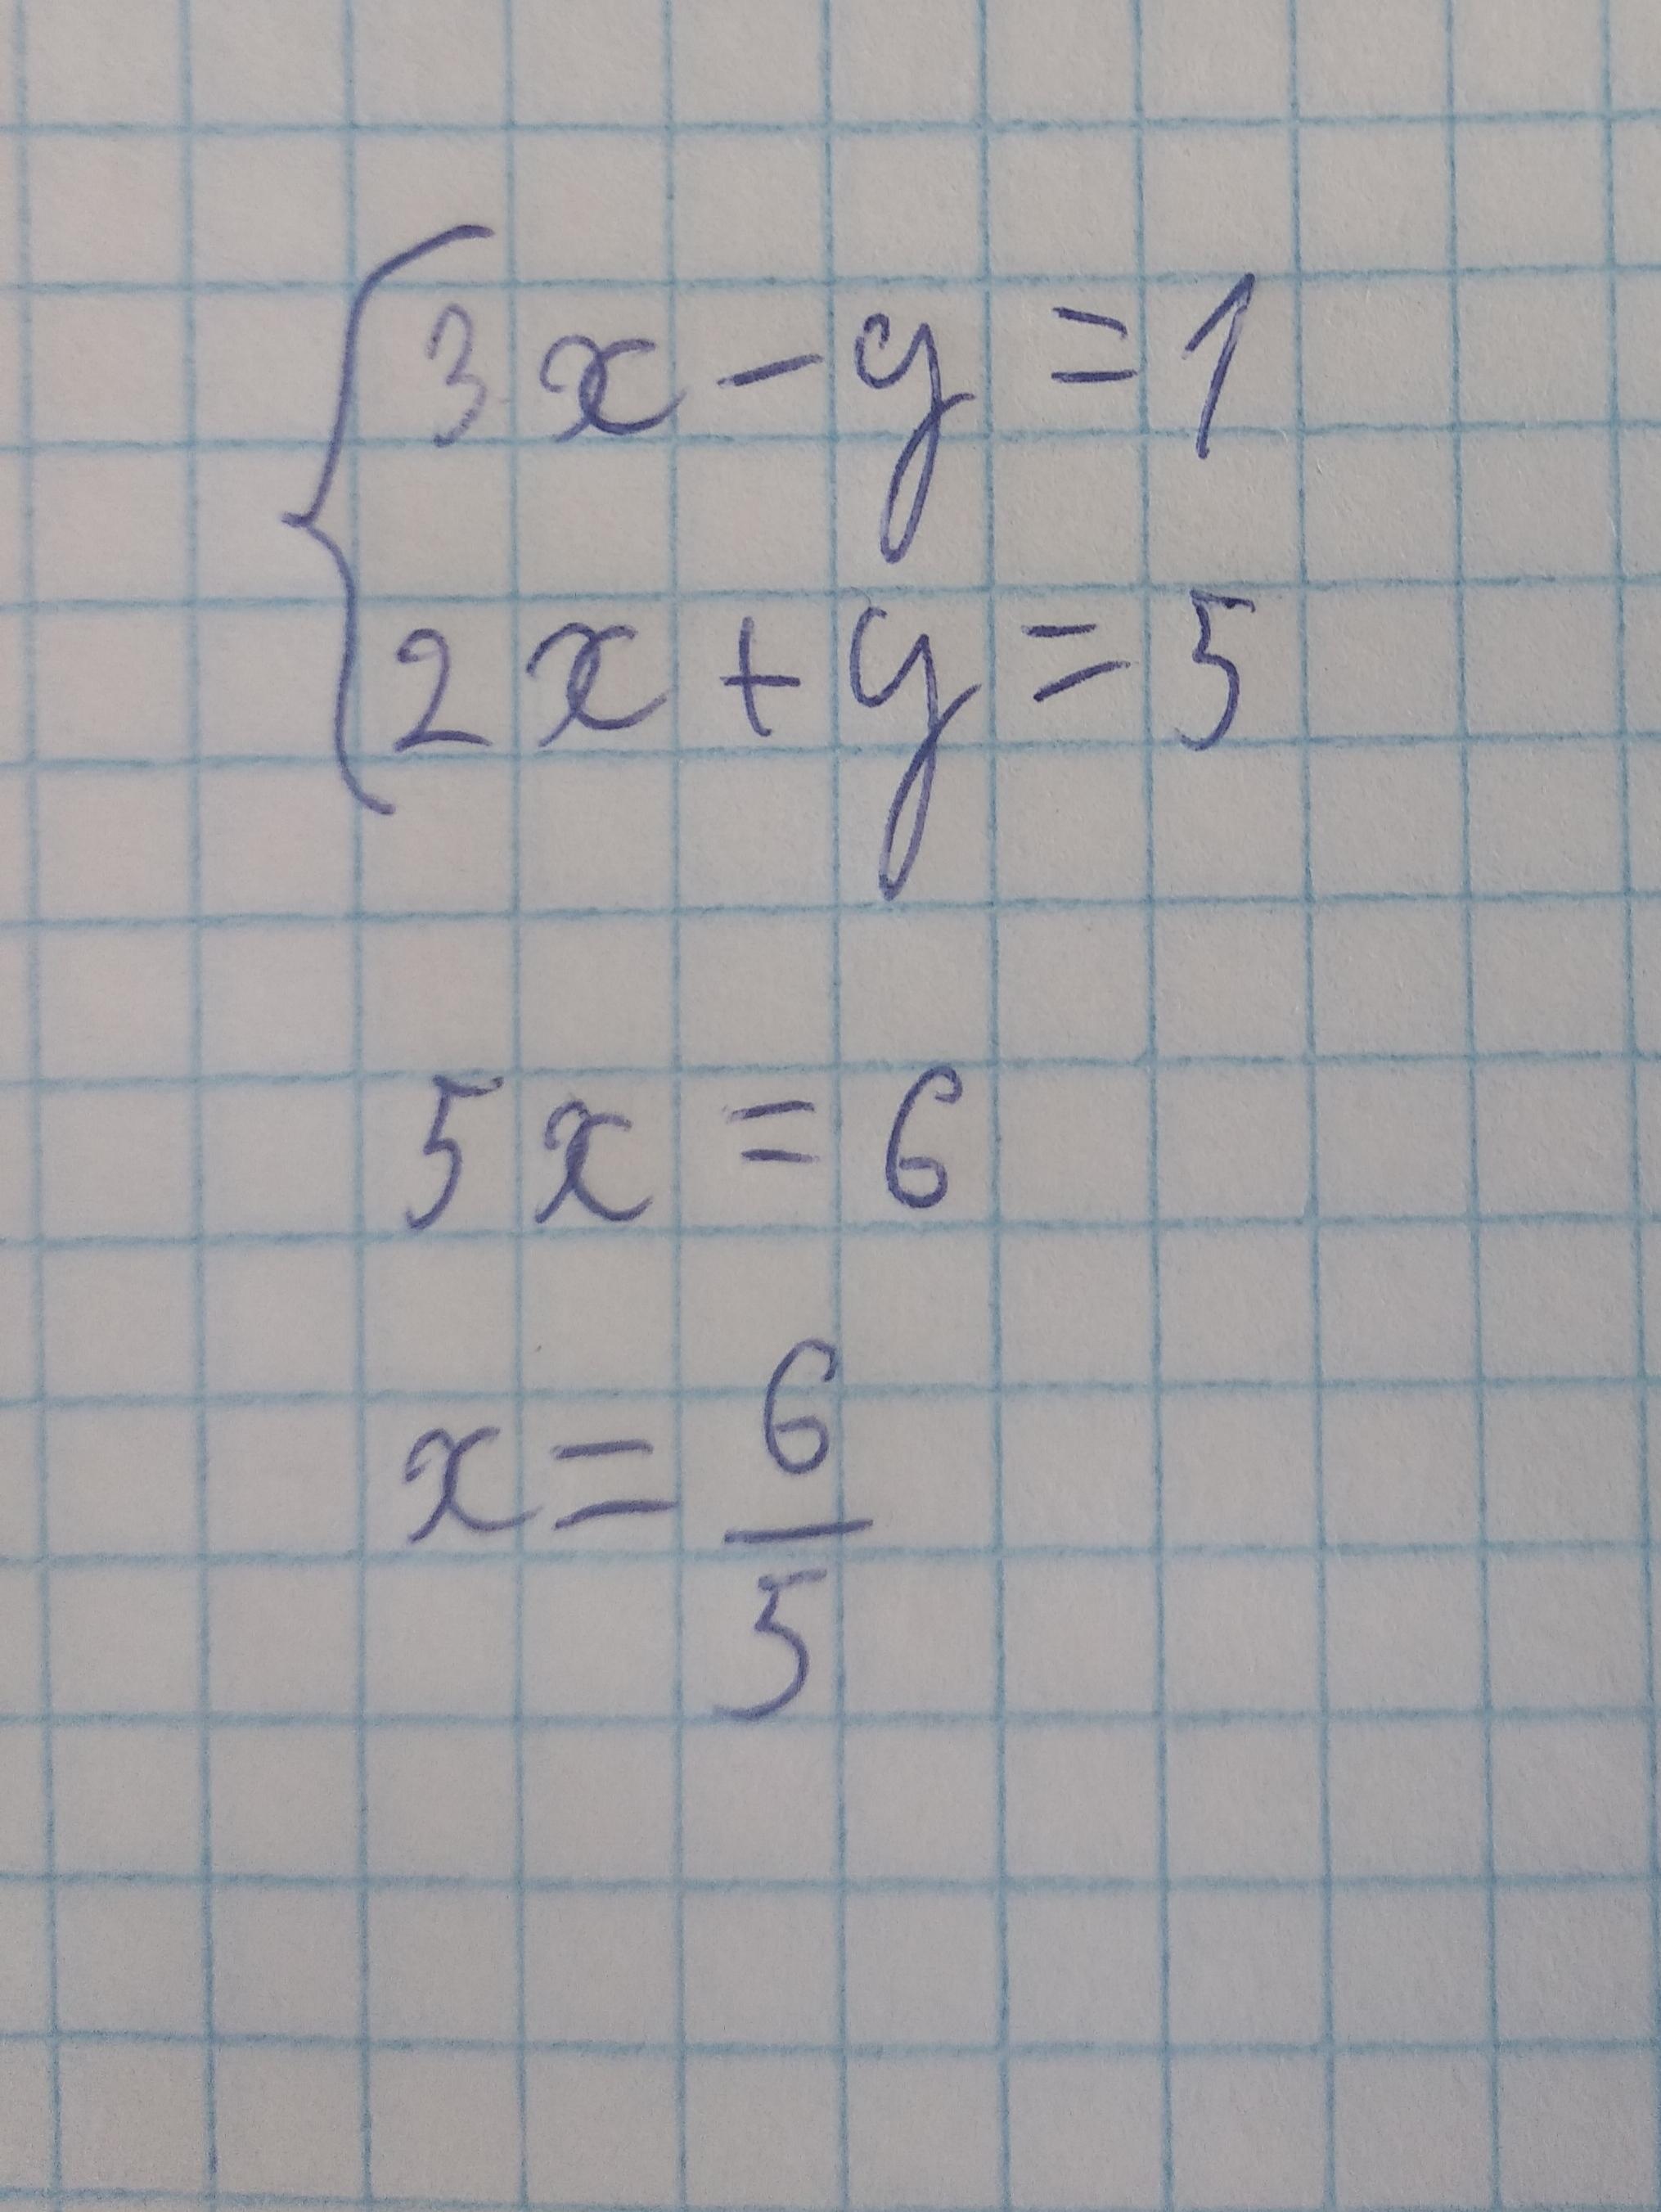 3x - y = 1
2x + y = 5
5x = 6
x = 6/5